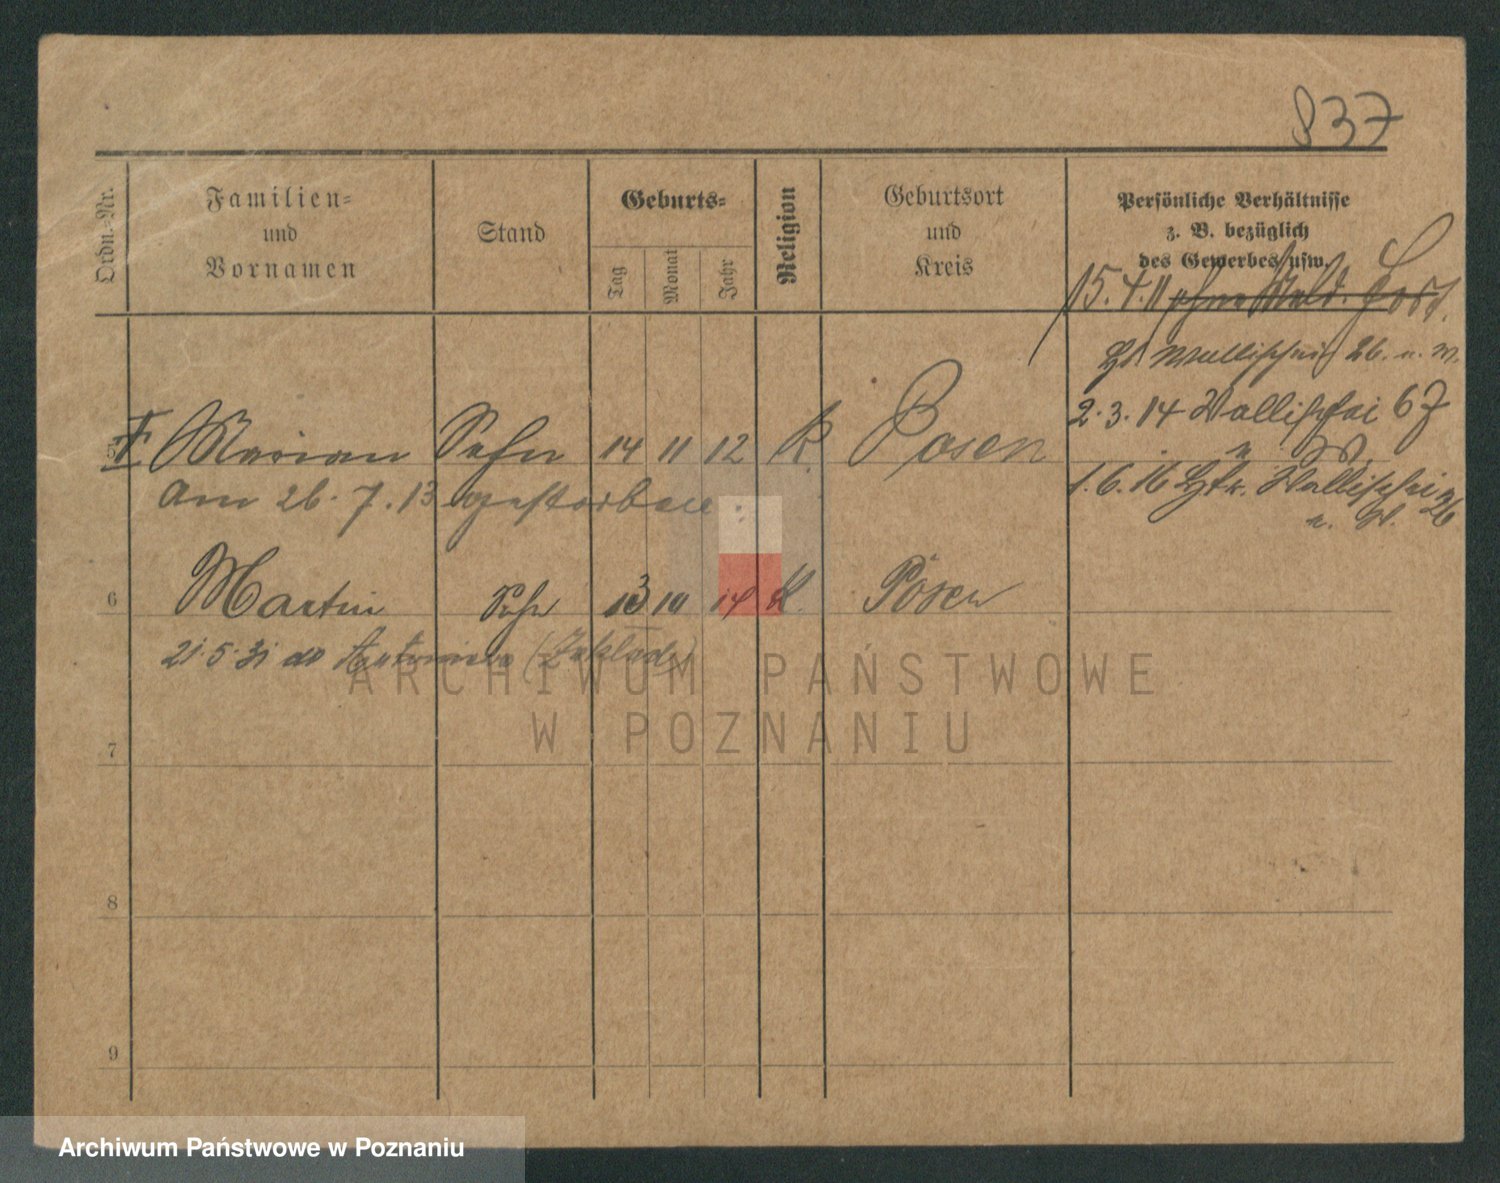 837
Ordn.-Nr.
Familien=
und
Vornamen
Stand
Geburts=
Tag
Monat
Jahr
Religion
Geburtsort
und
Kreis
Persönliche Verhältnisse
z. B. bezüglich
des Gewerbes usw.
15.4.11 ohne Meld. fort.
Wallischei 26. u. W.
2.3.14 Wallischei 67
u. W.
5 Marian Sohn 14 11 12 K. Posen
1.6.16 Wallischei 26
u. W.
am 26.7.13 gestorben.
6 Martin Sohn 13 10 14 K. Posen
21.5.31 do Antoninka (Zakład)
ARCHIWUM PAŃSTWOWE
W POZNANIU
7
8
9
Archiwum Państwowe w Poznaniu